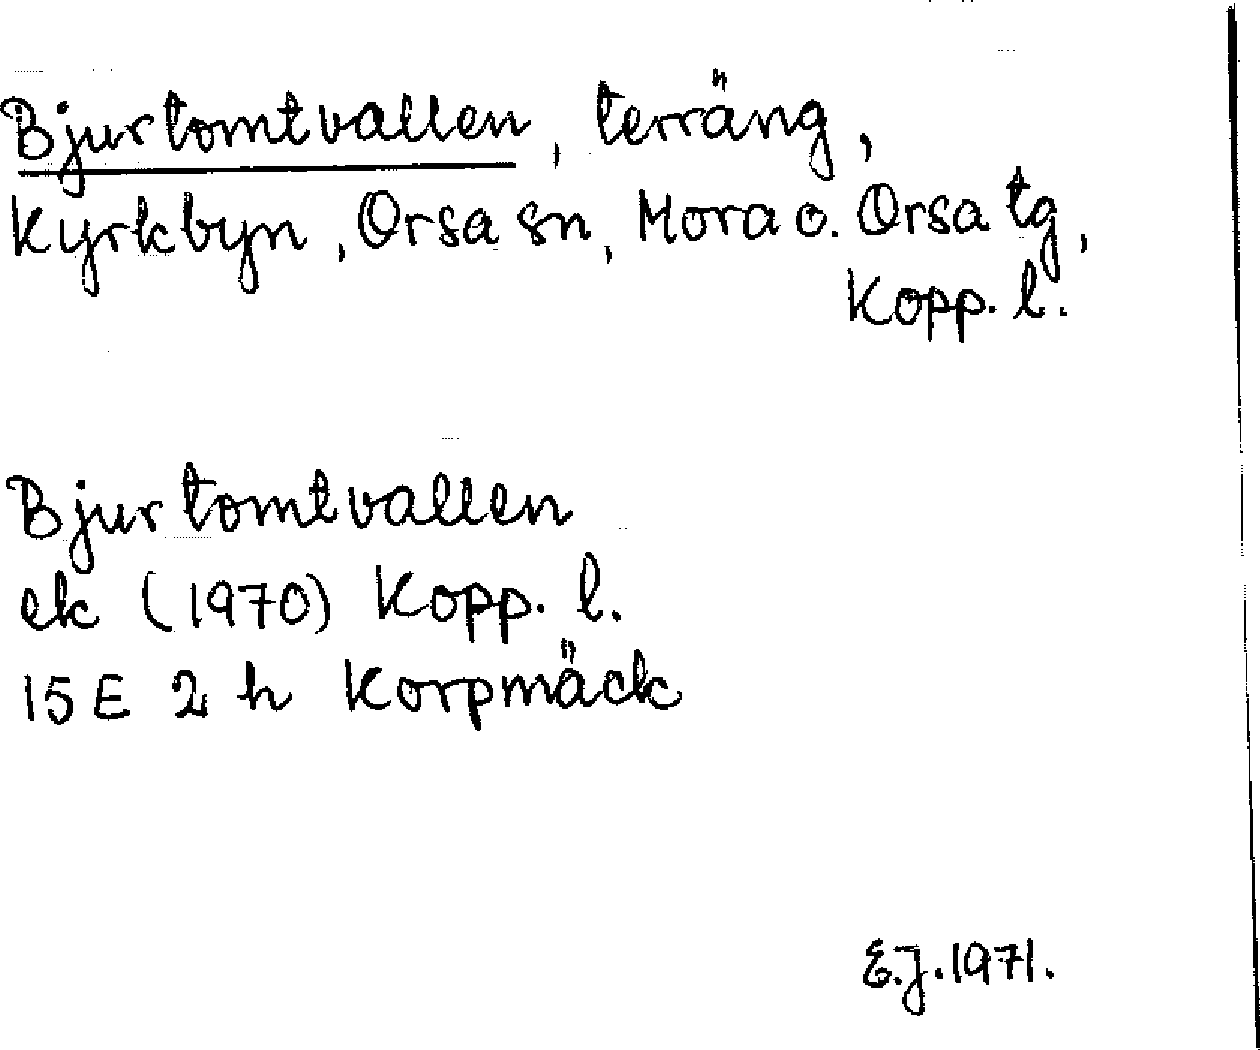 Bjurtomtvallen, terräng,
Kyrkbyn, Orsa sn, Mora o. Orsa tg,
Kopp. l.
Bjurtomtvallen
ek (1970) Kopp. l.
15 E 2 h Korpmäck
E.J. 1971.